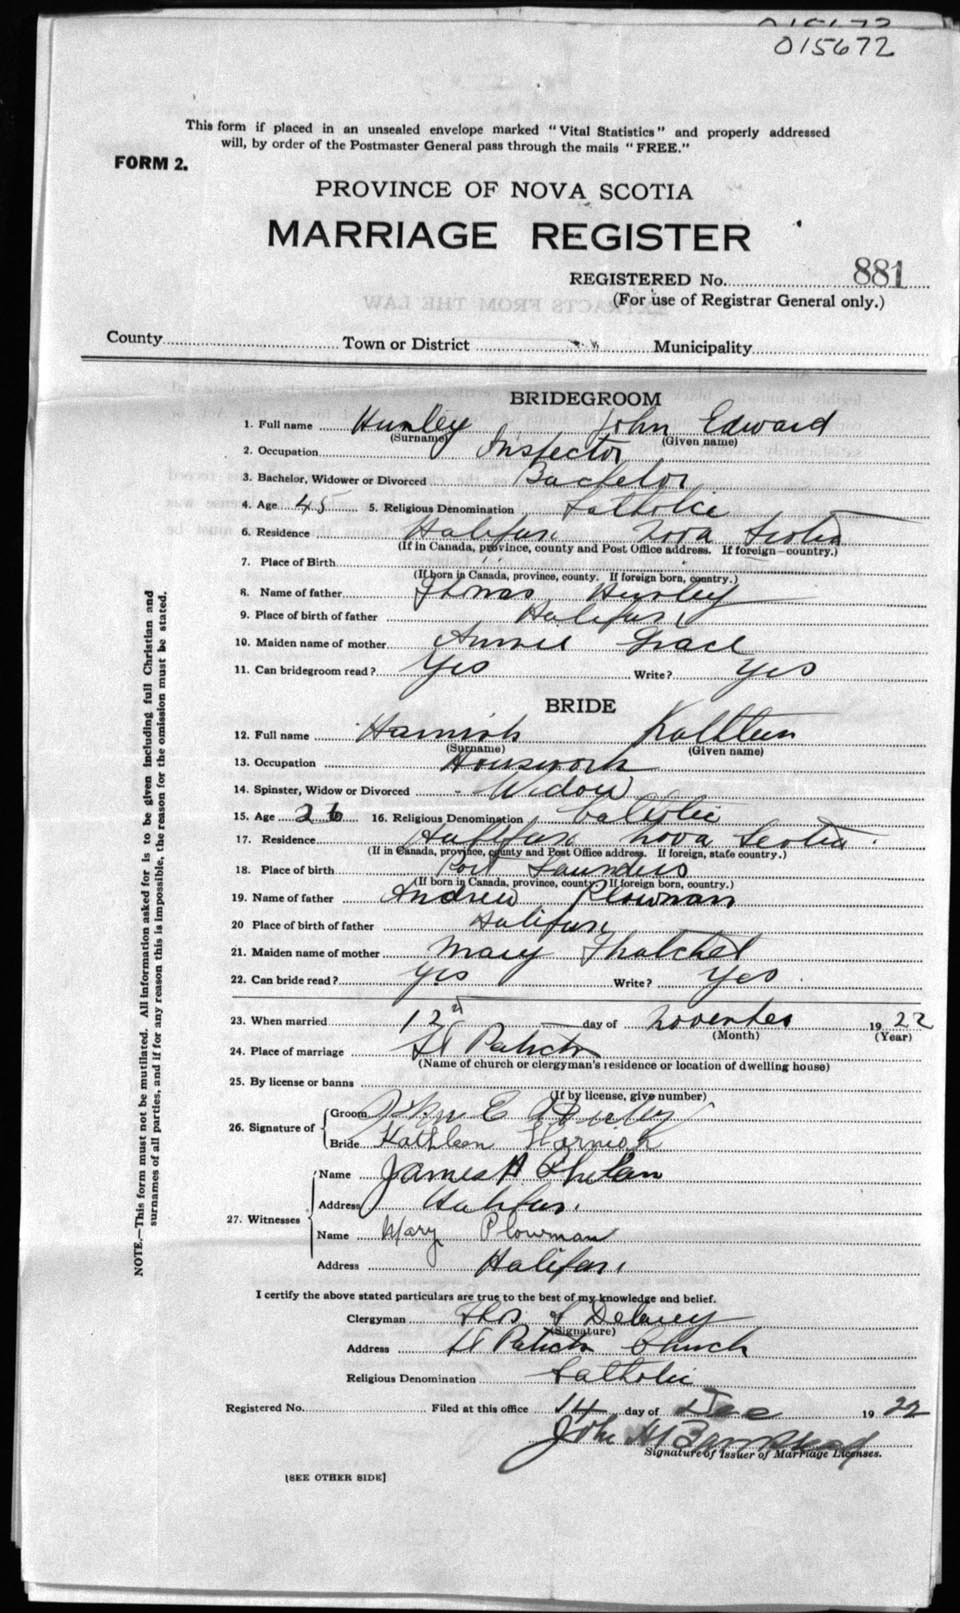 015672
This form if placed in an unsealed envelope marked "Vital Statistics" and properly addressed
will, by order of the Postmaster General pass through the mails "FREE."
FORM 2.
PROVINCE OF NOVA SCOTIA
MARRIAGE REGISTER
REGISTERED No. 881
(For use of Registrar General only.)
County Town or District Municipality
BRIDEGROOM
1. Full name Hurley John Edward
(Surname) (Given name)
2. Occupation Inspector
3. Bachelor, Widower or Divorced Bachelor
4. Age 45 5. Religious Denomination Catholic
6. Residence Halifax Nova Scotia
(If in Canada, province, county and Post Office address. If foreign—country.)
7. Place of Birth " "
(If born in Canada, province, county. If foreign born, country.)
8. Name of father Thomas Hurley
9. Place of birth of father Halifax
10. Maiden name of mother Annie Grace
11. Can bridegroom read? Yes Write? Yes
BRIDE
12. Full name Harnish Kathleen
(Surname) (Given name)
13. Occupation Housework
14. Spinster, Widow or Divorced Widow
15. Age 26 16. Religious Denomination Catholic
17. Residence Halifax Nova Scotia.
(If in Canada, province, county and Post Office address. If foreign, state country.)
18. Place of birth Port Saunders
(If born in Canada, province, county. If foreign born, country.)
19. Name of father Andrew Plowman
20 Place of birth of father Halifax
21. Maiden name of mother Mary Thatchel
22. Can bride read? Yes Write? Yes.
23. When married 12 day of November 1922
(Month) (Year)
24. Place of marriage St Patricks
(Name of church or clergyman's residence or location of dwelling house)
25. By license or banns
(If by license, give number)
26. Signature of
Groom John E
Bride Kathleen Harnish
27. Witnesses
Name James A Phelan
Address Halifax.
Name Mary Plowman
Address Halifax.
I certify the above stated particulars are true to the best of my knowledge and belief.
Clergyman Thos Delaney
(Signature)
Address St Patricks Church
Religious Denomination Catholic
Registered No. Filed at this office 14 day of Dec 1922
John
Signature of Issuer of Marriage Licenses.
[SEE OTHER SIDE]
NOTE.—This form must not be mutilated. All information asked for is to be given including full Christian and
surnames of all parties, and if for any reason this is impossible, the reason for the omission must be stated.